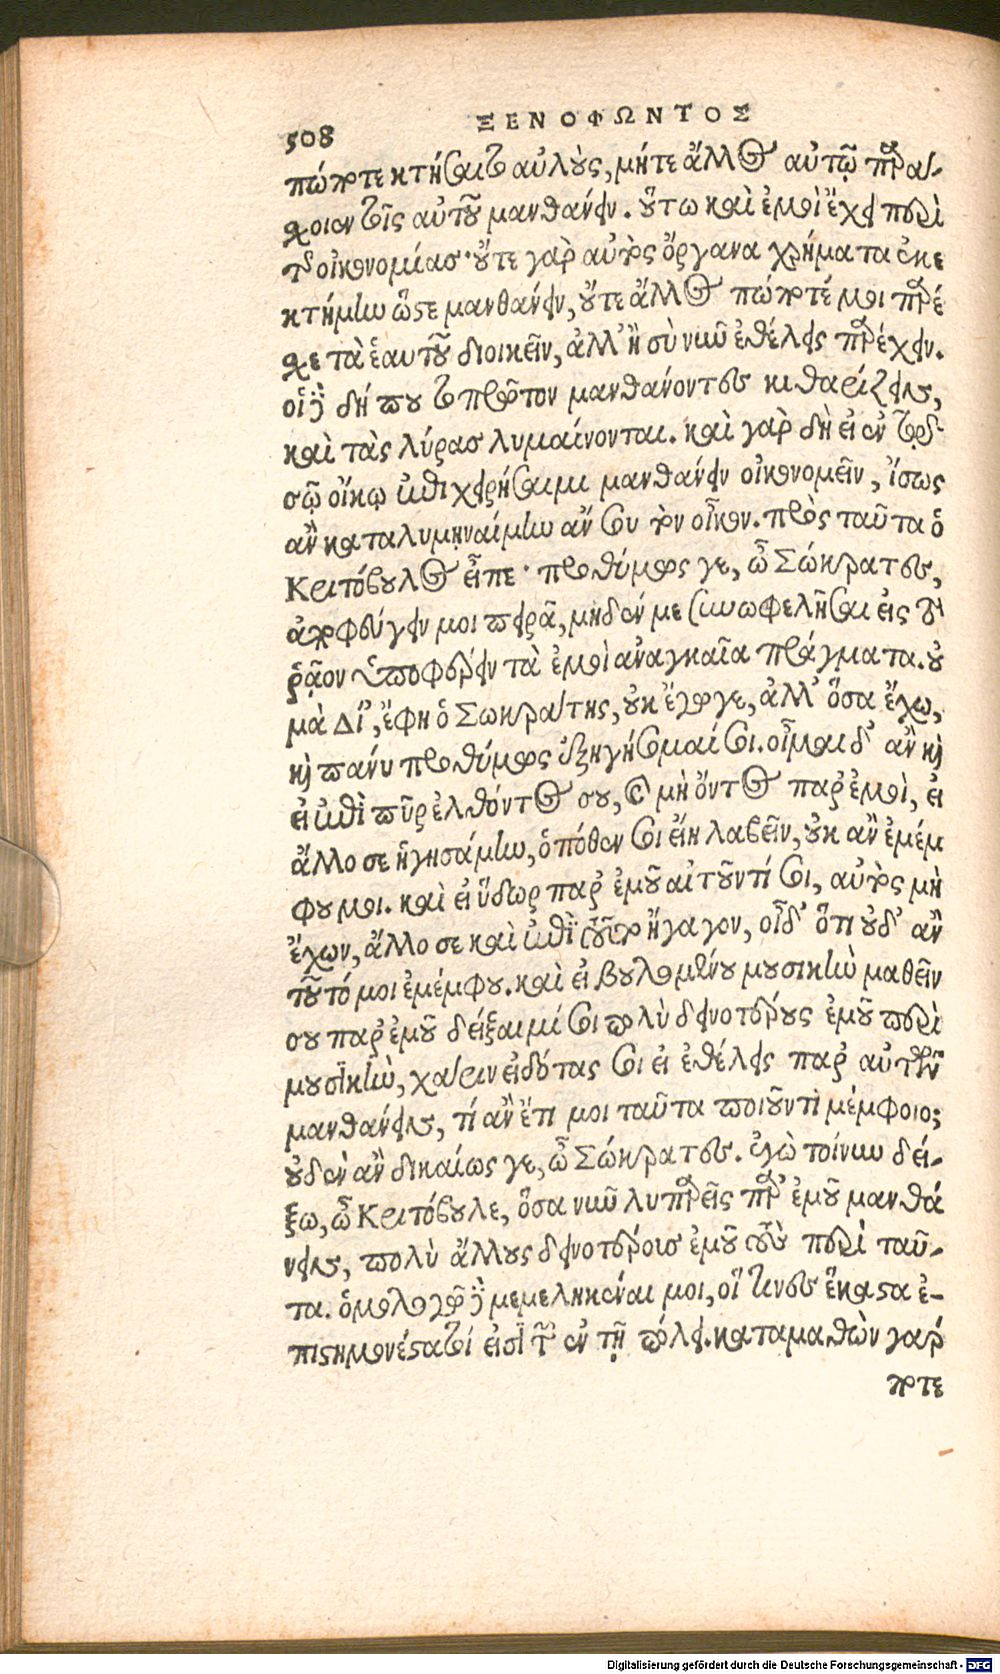 508
ΞΕΝΟΦΩΝΤΟΣ
πώποτε κτήσαιτο αὐλοὺς, μήτε ἄλλος αὐτῷ παρά-
χοι ἐν τοῖς αὐτοῦ μανθάνειν. οὕτω καὶ ἐμοὶ ἔχει περὶ
τῆς οἰκονομίας· οὔτε γὰρ αὐτὸς ὄργανα χρήματα ἐκε
κτήμην ὥστε μανθάνειν, οὔτε ἄλλος πώποτέ μοι παρέ
χε τὰ ἑαυτοῦ διοικεῖν, ἀλλ' ἢ σὺ νυνὶ ἐθέλεις παρέχειν.
οἱ δὲ δή που τὸ πρῶτον μανθάνοντες κιθαρίζειν,
καὶ τὰς λύρας λυμαίνονται. καὶ γὰρ δὴ εἰ ἐν τῷ
σῷ οἴκῳ ἐπιχειρήσαιμι μανθάνειν οἰκονομεῖν, ἴσως
ἂν καταλυμηναίμην ἄν σου τὸν οἶκον. πρὸς ταῦτα ὁ
Κριτόβουλος εἶπε· προθύμως γε, ὦ Σώκρατες,
ἀποφεύγειν μοι πειρᾷ, μηδέν με συνωφελῆσαι εἰς τὸ
ῥᾷον ὑποφέρειν τὰ ἐμοὶ ἀναγκαῖα πράγματα. οὐ
μὰ Δί', ἔφη ὁ Σωκράτης, οὐκ ἔγωγε, ἀλλ' ὅσα ἔχω,
καὶ πάνυ προθύμως ἐξηγήσομαί σοι. οἶμαι δ' ἂν καὶ
εἰ ἐπὶ πῦρ ἐλθόντος σου, καὶ μὴ ὄντος παρ' ἐμοὶ, εἰ
ἄλλο σε ἡγησάμην, ὁπόθεν σοι εἴη λαβεῖν, οὐκ ἂν ἐμέμ
φου μοι. καὶ εἰ ὕδωρ παρ' ἐμοῦ αἰτοῦντί σοι, αὐτὸς μὴ
ἔχων, ἄλλο σε καὶ ἐπὶ τοῦτο ἤγαγον, οἶδ' ὅτι οὐδ' ἂν
τοῦτό μοι ἐμέμφου. καὶ εἰ βουλομένου μουσικὴν μαθεῖν
σου παρ' ἐμοῦ δείξαιμί σοι πολὺ δεινοτέρους ἐμοῦ περὶ
μουσικὴν, χάριν εἰδότας σοι εἰ ἐθέλεις παρ' αὐτῶν
μανθάνειν, τί ἂν ἔτι μοι ταῦτα ποιοῦντι μέμφοιο;
οὐδὲν ἂν δικαίως γε, ὦ Σώκρατες. ἐγὼ τοίνυν δεί-
ξω, ὦ Κριτόβουλε, ὅσα νῦν λιπαρεῖς παρ' ἐμοῦ μανθά
νειν, πολὺ ἄλλους δεινοτέρους ἐμοῦ τοὺς περὶ ταῦ-
τα. ὁμολογῶ δὲ μεμεληκέναι μοι, οἵ τινες ἕκαστα ἐ-
πιστημονέστατοί εἰσι τῶν ἐν τῇ πόλει. καταμαθὼν γάρ
ποτε
Digitalisierung gefördert durch die Deutsche Forschungsgemeinschaft - DFG